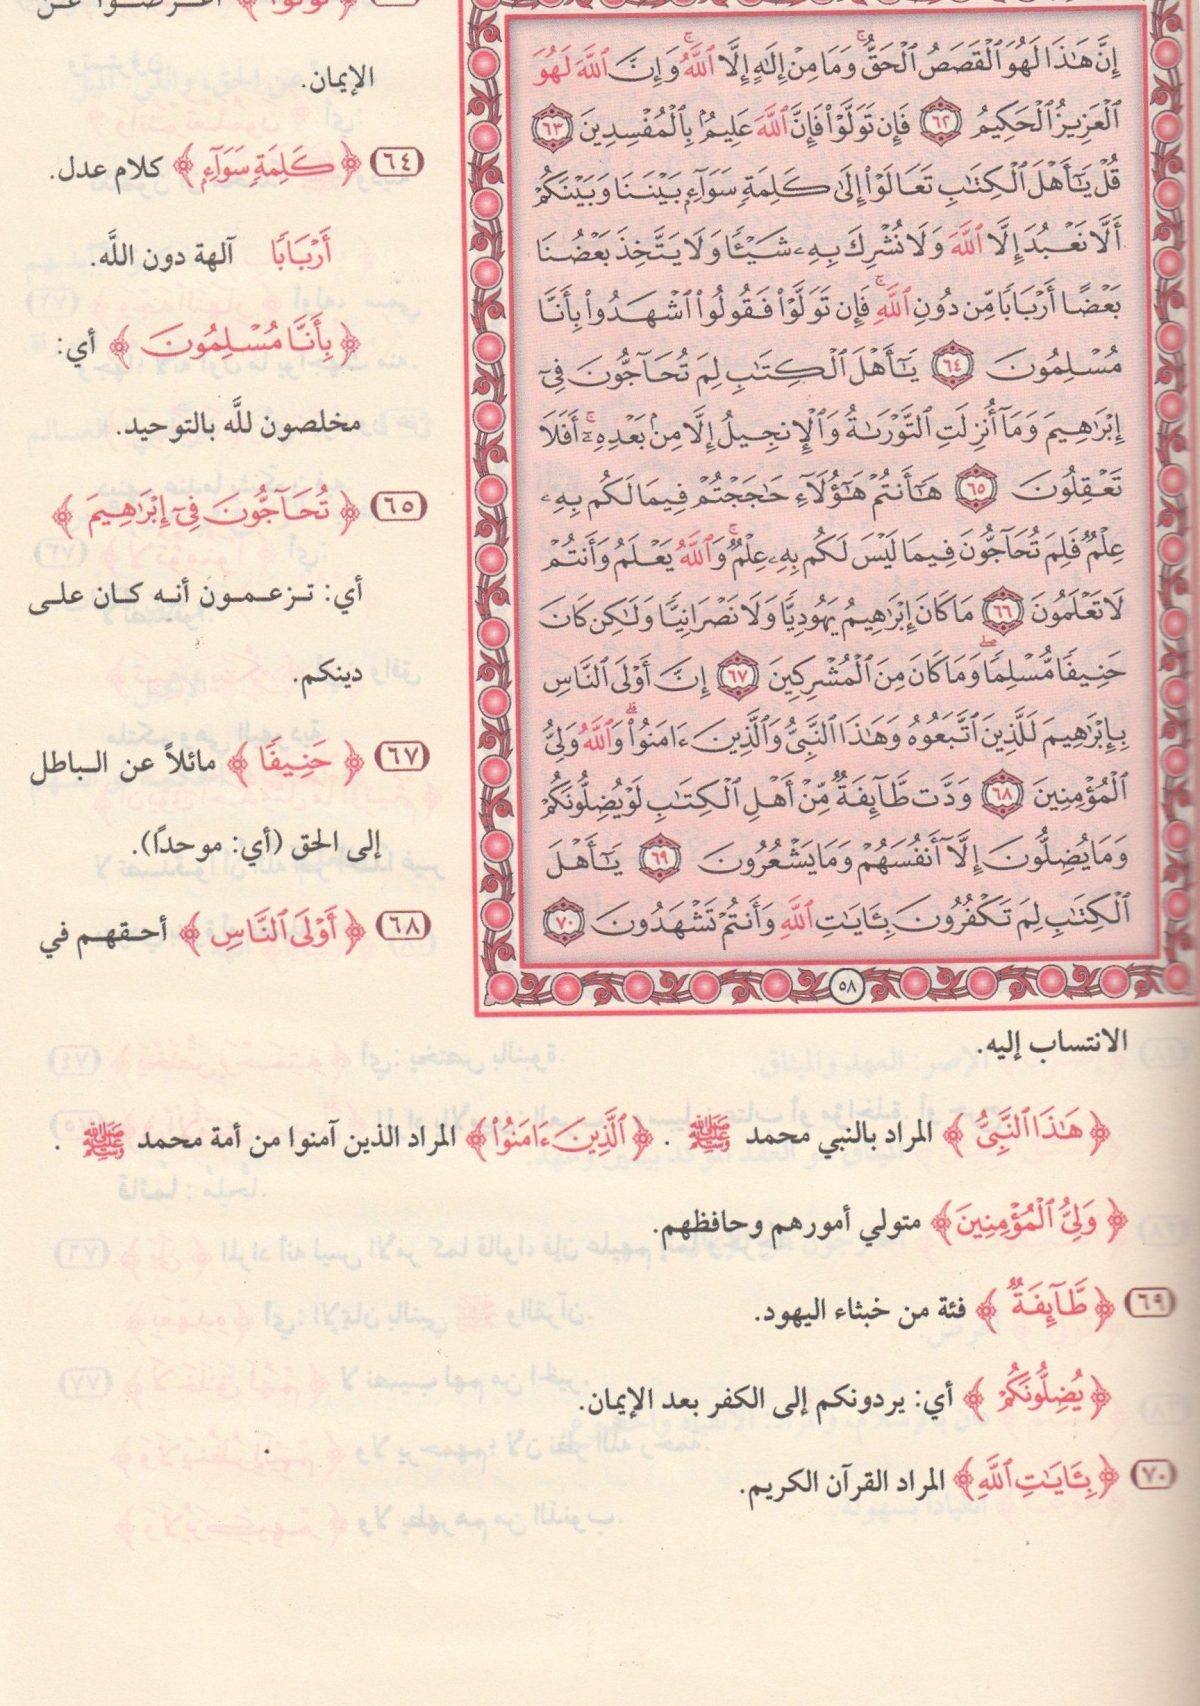 إِنَّ هَٰذَا لَهُوَ ٱلْقَصَصُ ٱلْحَقُّ ۚ وَمَا مِنْ إِلَٰهٍ إِلَّا ٱللَّهُ ۚ وَإِنَّ ٱللَّهَ لَهُوَ
ٱلْعَزِيزُ ٱلْحَكِيمُ ٦٢ فَإِن تَوَلَّوْا۟ فَإِنَّ ٱللَّهَ عَلِيمٌۢ بِٱلْمُفْسِدِينَ ٦٣
قُلْ يَٰٓأَهْلَ ٱلْكِتَٰبِ تَعَالَوْا۟ إِلَىٰ كَلِمَةٍ سَوَآءٍۭ بَيْنَنَا وَبَيْنَكُمْ
أَلَّا نَعْبُدَ إِلَّا ٱللَّهَ وَلَا نُشْرِكَ بِهِۦ شَيْـًٔا وَلَا يَتَّخِذَ بَعْضُنَا
بَعْضًا أَرْبَابًا مِّن دُونِ ٱللَّهِ ۚ فَإِن تَوَلَّوْا۟ فَقُولُوا۟ ٱشْهَدُوا۟ بِأَنَّا
مُسْلِمُونَ ٦٤ يَٰٓأَهْلَ ٱلْكِتَٰبِ لِمَ تُحَآجُّونَ فِىٓ
إِبْرَٰهِيمَ وَمَآ أُنزِلَتِ ٱلتَّوْرَىٰةُ وَٱلْإِنجِيلُ إِلَّا مِنۢ بَعْدِهِۦٓ ۚ أَفَلَا
تَعْقِلُونَ ٦٥ هَٰٓأَنتُمْ هَٰٓؤُلَآءِ حَٰجَجْتُمْ فِيمَا لَكُم بِهِۦ
عِلْمٌ فَلِمَ تُحَآجُّونَ فِيمَا لَيْسَ لَكُم بِهِۦ عِلْمٌ ۚ وَٱللَّهُ يَعْلَمُ وَأَنتُمْ
لَا تَعْلَمُونَ ٦٦ مَا كَانَ إِبْرَٰهِيمُ يَهُودِيًّا وَلَا نَصْرَانِيًّا وَلَٰكِن كَانَ
حَنِيفًا مُّسْلِمًا ۖ وَمَا كَانَ مِنَ ٱلْمُشْرِكِينَ ٦٧ إِنَّ أَوْلَى ٱلنَّاسِ
بِإِبْرَٰهِيمَ لَلَّذِينَ ٱتَّبَعُوهُ وَهَٰذَا ٱلنَّبِىُّ وَٱلَّذِينَ ءَامَنُوا۟ ۗ وَٱللَّهُ وَلِىُّ
ٱلْمُؤْمِنِينَ ٦٨ وَدَّت طَّآئِفَةٌ مِّنْ أَهْلِ ٱلْكِتَٰبِ لَوْ يُضِلُّونَكُمْ
وَمَا يُضِلُّونَ إِلَّآ أَنفُسَهُمْ وَمَا يَشْعُرُونَ ٦٩ يَٰٓأَهْلَ
ٱلْكِتَٰبِ لِمَ تَكْفُرُونَ بِـَٔايَٰتِ ٱللَّهِ وَأَنتُمْ تَشْهَدُونَ ٧٠
٥٨
الإيمان.
٦٤ ﴿كَلِمَةٍ سَوَآءٍ﴾ كلام عدل.
أَرْبَابًا آلهة دون اللَّه.
﴿بِأَنَّا مُسْلِمُونَ﴾ أي:
مخلصون للَّه بالتوحيد.
٦٥ ﴿تُحَآجُّونَ فِىٓ إِبْرَٰهِيمَ﴾
أي: تزعمون أنه كان على
دينكم.
٦٧ ﴿حَنِيفًا﴾ مائلاً عن الباطل
إلى الحق (أي: موحدًا).
٦٨ ﴿أَوْلَى ٱلنَّاسِ﴾ أحقهم في
الانتساب إليه.
﴿هَٰذَا ٱلنَّبِىُّ﴾ المراد بالنبي محمد ﷺ . ﴿ٱلَّذِينَ ءَامَنُوا۟﴾ المراد الذين آمنوا من أمة محمد ﷺ .
﴿وَلِىُّ ٱلْمُؤْمِنِينَ﴾ متولي أمورهم وحافظهم.
٦٩ ﴿طَّآئِفَةٌ﴾ فئة من خبثاء اليهود.
﴿يُضِلُّونَكُمْ﴾ أي: يردونكم إلى الكفر بعد الإيمان.
٧٠ ﴿بِـَٔايَٰتِ ٱللَّهِ﴾ المراد القرآن الكريم.